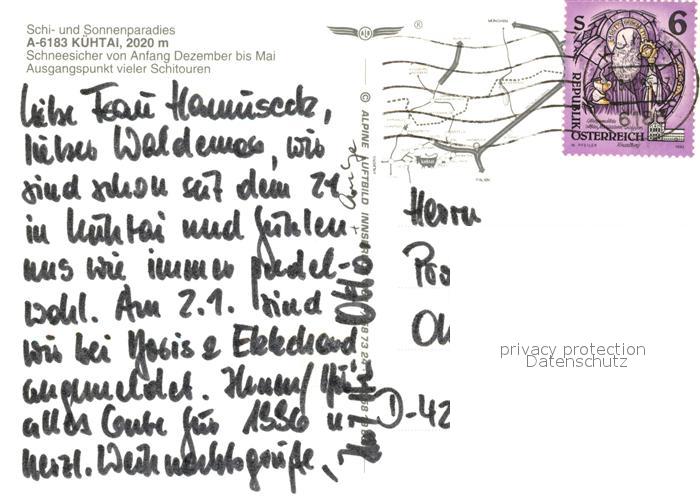 Schi- und Sonnenparadies
A-6183 KÜHTAI, 2020 m
Schneesicher von Anfang Dezember bis Mai
Ausgangspunkt vieler Schitouren
Liebe Frau Hanuseck,
lieber Waldemar, wir
sind schon seit dem 21
in Kühtai und fühlen
uns wie immer pudel-
wohl. Am 2.1. sind
wir bei & Ekkehard
angemeldet.
alles Gute für 1996 u.
herzl. Weihnachtsgrüße,
Otto +
© ALPINE LUFTBILD INNSBR
®
MÜNCHEN
ITALIEN
S 6
REPUBLIK
ÖSTERREICH
Herrn
D-42
privacy protection
Datenschutz